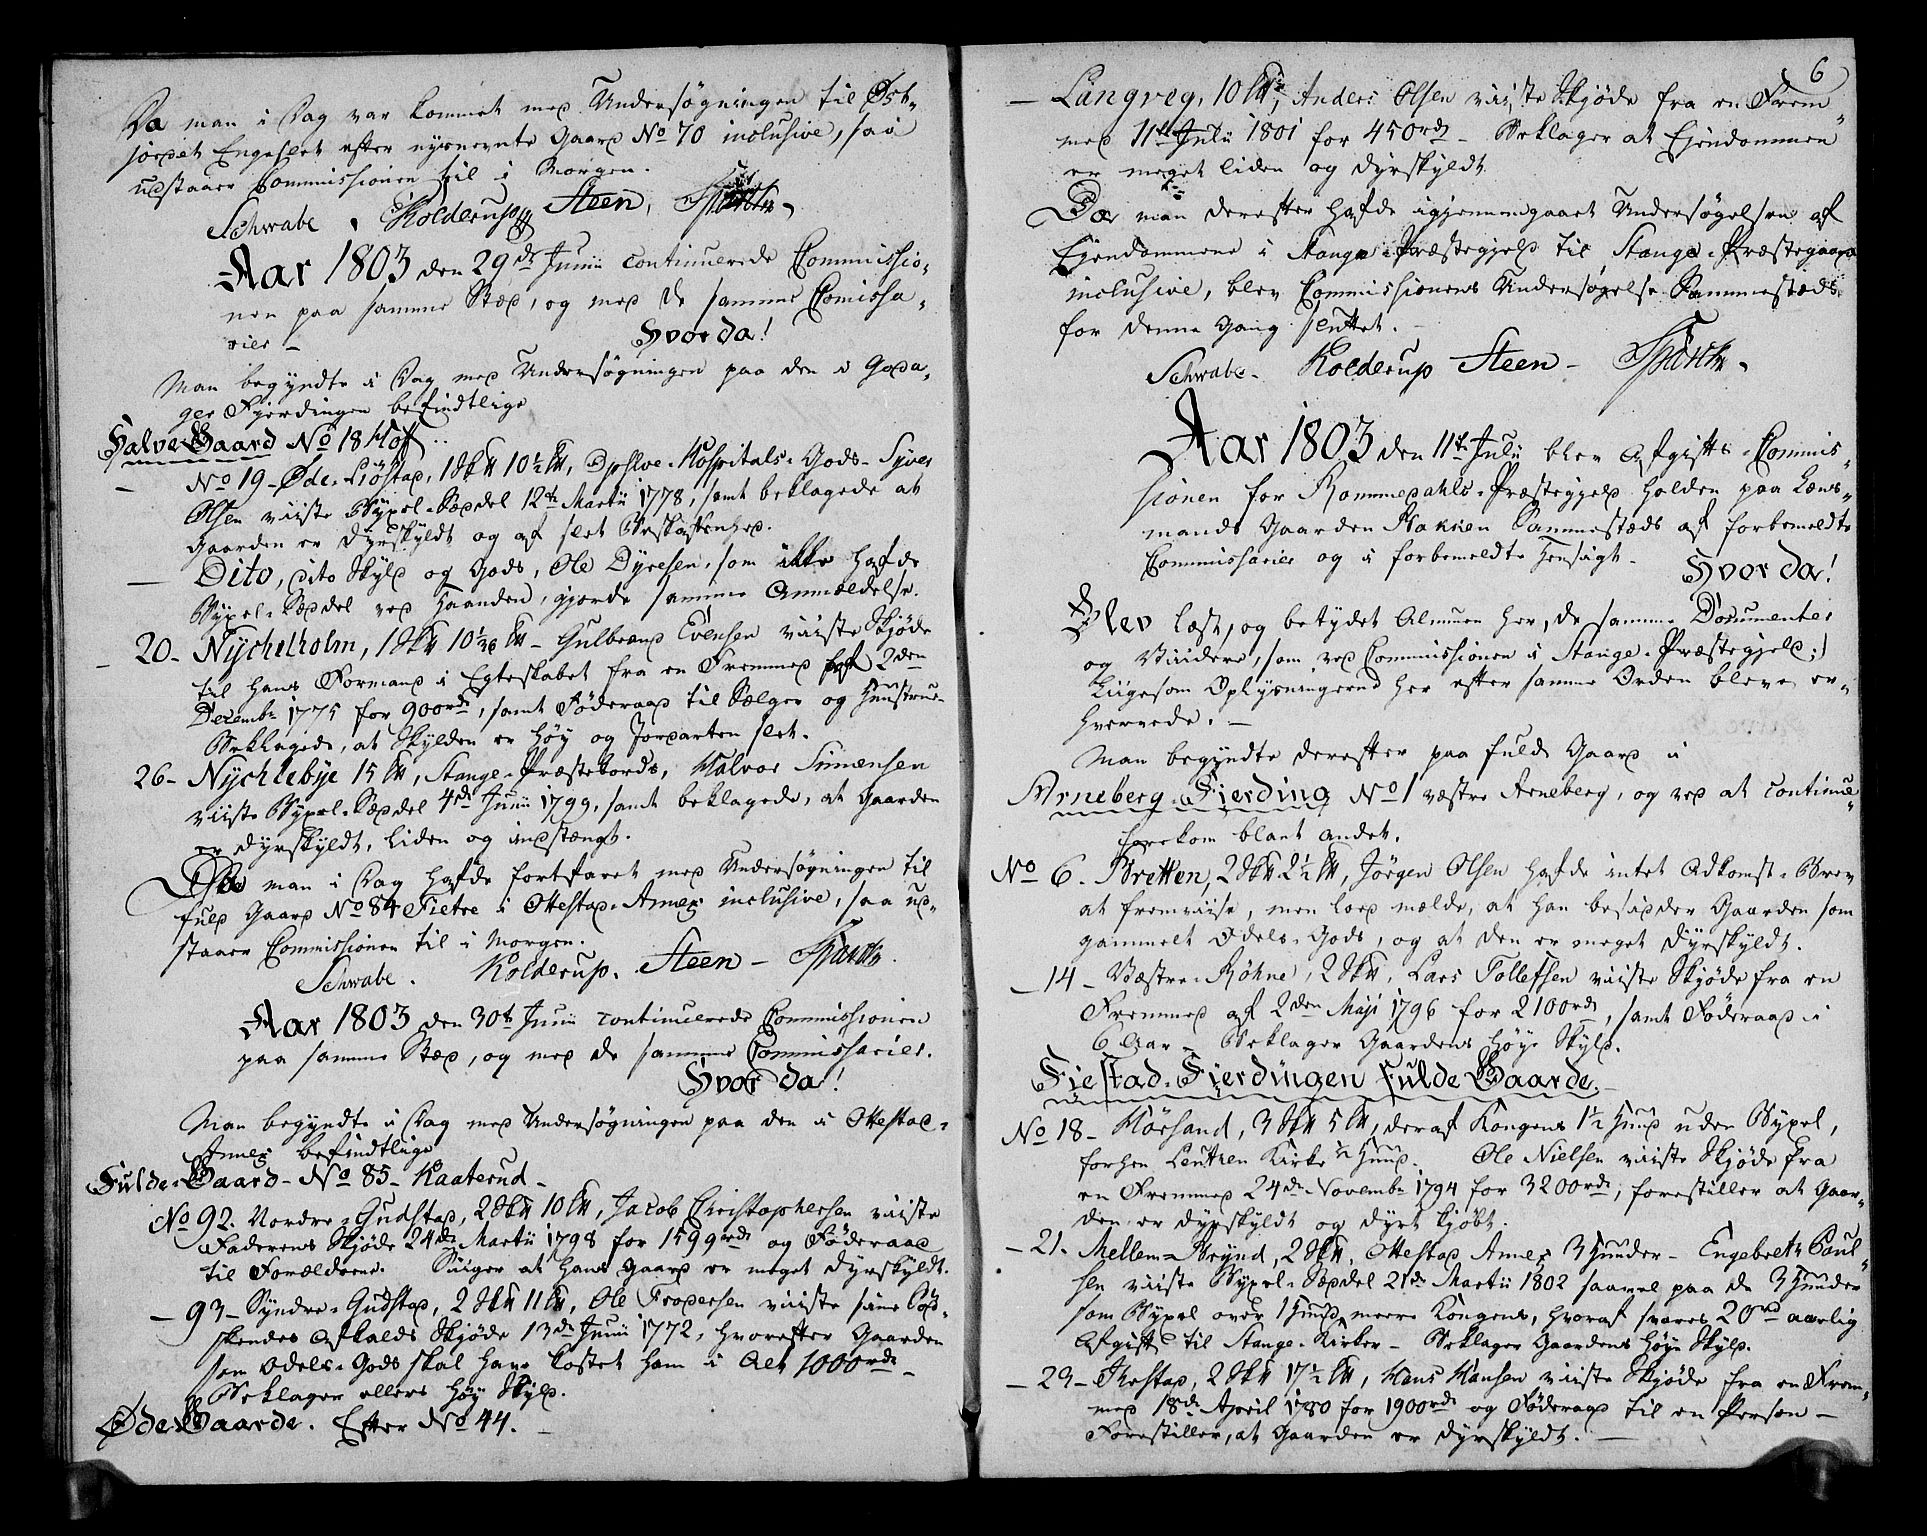 Da man i Dag var kommet med Undersøgningen til Øst-
jordet Engeslet efter nysnevnte Gaard No 70 inclusive, saa
udstaaer Commissionen til i Morgen.
Schwabe. Kolderup Steen,
Aar 1803 den 29de Junii continuerede Commissio-
nen paa samme Stæd, og med de samme Comissa-
rier -
Hvor da!
Man begyndte i Dag med Undersøgningen paa den i Goda-
ger Fjerdingen befindtlige
Halve Gaard No 18 Hoff
No 19 - Øde-Liøstad, 1 Skll 10½ Lll, Opslve-Hospitals-Gods - Syver
Olsen viiste Bygsel-Sæddel 12te Martii 1778, samt beklagede at
Gaarden er dyrskyldt og af slet Beskaffenhed.
— Dito, dito Skyld og Gods, Ole Dyresen, som ikke hafde
Bygsel-Sæddel ved Haanden, gjorde samme Anmældelse.
20 - Nychelholm, 1 Skll 10½ Lll - Gulbrand Evensen viiste Skjøde
til hans Formand i Egteskabet fra en Fremmed af 2den
Decembr 1775 for 900rd, samt Føderaad til Sælger og Hunstrue
Beklagede, at Skylden er høy og Jordarten slet.
26 - Nychlebye 15 Lll, Stange-Præstebords, Halvor Simensen
viiste Bygsel-Sæddel 4de Junii 1799, samt beklagede, at Gaarden
er dyrskyldt, liden og indstængt.
Da man i Dag hafde fortfaret med Undersøgningen til
fuld Gaard No 84 Tietre i Ottestad-Annex inclusive, saa ud-
staaer Commissionen til i Morgen.
Schwabe. Kolderup. Steen -
Aar 1803 den 30te Junii continuerede Commissionen
paa samme Stæd, og med de samme Commissarier.
Hvor da!
Man begyndte i Dag med Undersøgningen paa den i Ottestad-
Annex befindtlige
Fulde-Gaard - No 85 - Kaaterud -
No 92. Nordre-Gudstad, 2 Skll 10 Lll, Jacob Christophersen viiste
Faderens Skjøde 24de Martii 1798 for 1599rd og Føderaad
til Forældrene. Siiger at hans Gaard er meget dyrskyldt.
— 93 - Syndre-Gudstad, 2 Skll 11 Lll, Ole Frodersen viiste sine Sød-
skendes Afkalds Skjøde 13de Junii 1772, hvorefter Gaarden
som Odels-Gods skal have kostet ham i Alt 1000rd -
Beklager ellers høy Skyld.
Øde-Gaarde. Efter No 44. -
6
— Langveg, 10 Lll, Anders Olsen viiste Skjøde fra en Frem-
med 11te Julii 1801 for 450rd - Beklager at Ejendommen
er meget liden og dyrskyldt
Da man derefter hafde igjennemgaaet Undersøgelsen af
Ejendommene i Stange-Præstegjeld til Stange-Præstegaard
inclusive, blev Commissionens Undersøgelse Sammestæds
for denne Gang sluttet.
Schwabe - Kolderup Steen -
Aar 1803 den 11te Julii blev Afgifts-Commis-
sionen for Rommedahls-Præstegjeld holden paa Lens-
mands Gaarden Stakken Sammestæds af forbemeldte
Commissarier og i forbemeldte Hensigt.
Hvor da!
Blev læst, og betydet Almuen her, de samme Documenter
og Viidere, som ved Commissionen i Stange-Præstegjeld;
Liigesom Oplysningerne her efter samme Orden bleve er-
hvervede. -
Man begyndte derefter paa fulde Gaard i
Arneberg-Fierding No 1 væstre Arneberg, og ved at continue-
forekom blant andet.
No 6. Bretten, 2 Skll 2½ Lll, Jørgen Olsen hafde intet Adkomst-Brev
at fremviise, men lod mælde, at han besidder Gaarden som
gammelt Odels-Gods, og at den er meget dyrskyldt.
— 14 - Væstre-Røhne, 2 Skll, Lars Tollefsen viiste Skjøde fra en
Fremmed af 2den Maji 1796 for 2100rd, samt Føderaad i
6 Aar - Beklager Gaardens høye Skyld.
Fiestad-Fierdingen fulde Gaarde. -
No 18 - Hørsand, 3 Skll 5 Lll, deraf Kongens 1½ Huud uden Bygsel,
forhen Leuten Kirke ½ Huud. Ole Nielsen viiste Skjøde fra
en Fremmed 24de Novembr 1794 for 3200rd, forestiller at Gaar-
den er dyrskyldt og dyrt kjøbt.
— 21. Mellem-Brynd, 2 Skll, Ottestad Annex 3 Huuder - Engebreth Poul-
sen viiste Bygsel-Sæddel 21de Martii 1802 saavel paa de 3 Huuder
som Bygsel over 1 Huud meere Kongens, hvoraf svares 20rd aarlig
Afgift til Stange-Kirker - Beklager Gaardens høye Skyld.
— 29 - Ihestad, 2 Skll 17½ Lll, Hans Hansen viiste Skjøde fra en Frem-
med 18de April 1780 for 1900rd og Føderaad til en Person -
Forestiller, at Gaarden er dyrskyldt. -